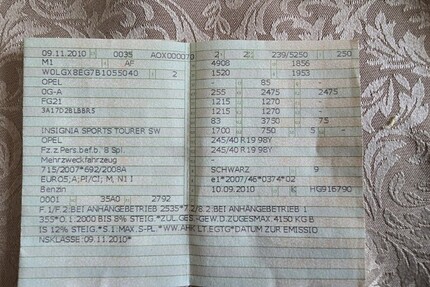 09.11.2010 0035 AOX000070
M1 AF
W0LGX8EG7B1055040 2
OPEL
0G-A
FG21
3A17D2BLBBR5
INSIGNIA SPORTS TOURER SW
OPEL
Fz.z.Pers.bef.b. 8 Spl.
Mehrzweckfahrzeug
715/2007*692/2008A
EURO5;A;PI/CI; M, N1 I
Benzin
0001 35A0 2792
2 2 239/5250 250
4908 1856
1520 1953
- 85 -
255 2475 2475
1215 1270 -
1215 1270 -
83 3750 75
1700 750 5 -
245/40 R19 98Y
245/40 R19 98Y
-
SCHWARZ 9
e1*2007/46*0374*02
10.09.2010 K HG916790
F.1/F.2:BEI ANHÄNGEBETRIEB 2535*7.2/8.2:BEI ANHÄNGEBETRIEB 1
355*O.1:1800 BIS 8% STEIG.*ZUL.GES.-GEW.D.ZUGES MAX.4150 KG B
IS 12% STEIG.*S.1:MAX.5-PL.*WW.AHK LT.EGTG*DATUM ZUR EMISSIO
NSKLASSE:09.11.2010*